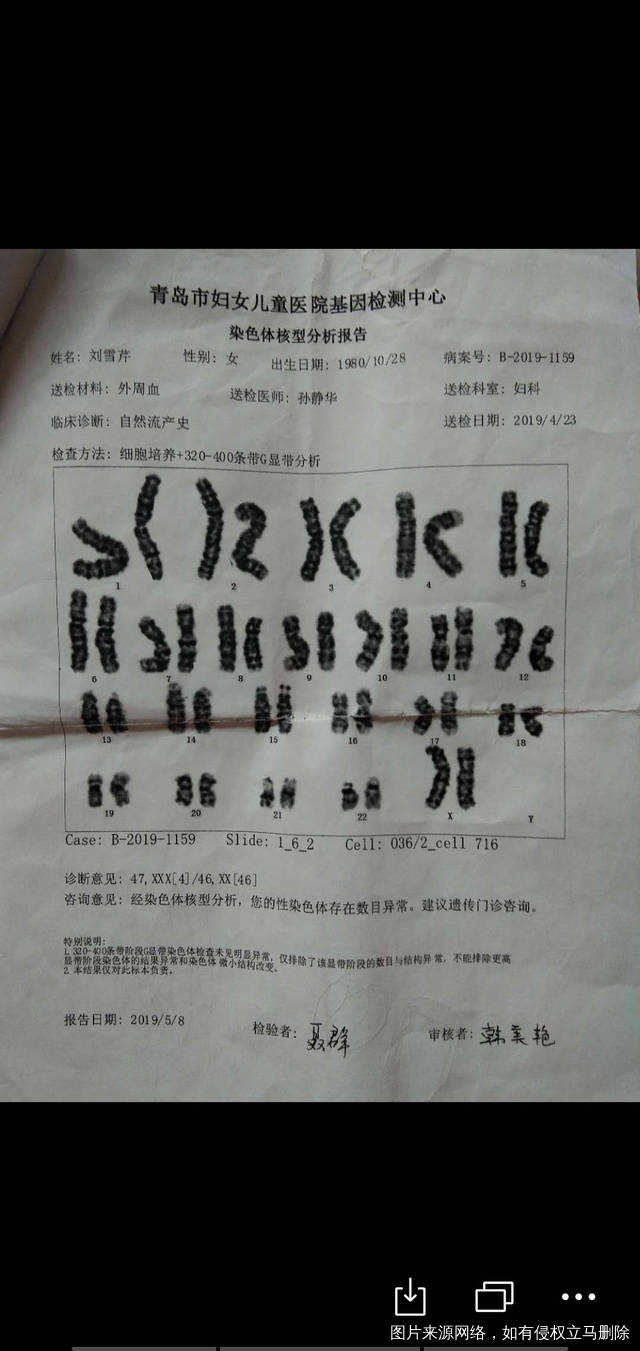 青岛市妇女儿童医院基因检测中心
染色体核型分析报告
姓名: 刘雪芹 性别: 女 出生日期: 1980/10/28 病案号: B-2019-1159
送检材料: 外周血 送检医师: 孙静华 送检科室: 妇科
临床诊断: 自然流产史 送检日期: 2019/4/23
检查方法: 细胞培养+320-400条带G显带分析
1 2 3 4 5
6 7 8 9 10 11 12
13 14 15 16 17 18
19 20 21 22 X Y
Case: B-2019-1159 Slide: 1_6_2 Cell: 036/2_cell 716
诊断意见: 47,XXX[4]/46,XX[46]
咨询意见: 经染色体核型分析，您的性染色体存在数目异常。建议遗传门诊咨询。
特别说明:
1. 320-400条带阶段G显带染色体检查未见明显异常，仅排除了该显带阶段的数目与结构异常，不能排除更高
显带阶段染色体的结果异常和染色体微小结构改变。
2. 本结果仅对此标本负责。
报告日期: 2019/5/8 检验者: 聂群 审核者: 韩美艳
图片来源网络，如有侵权立马删除